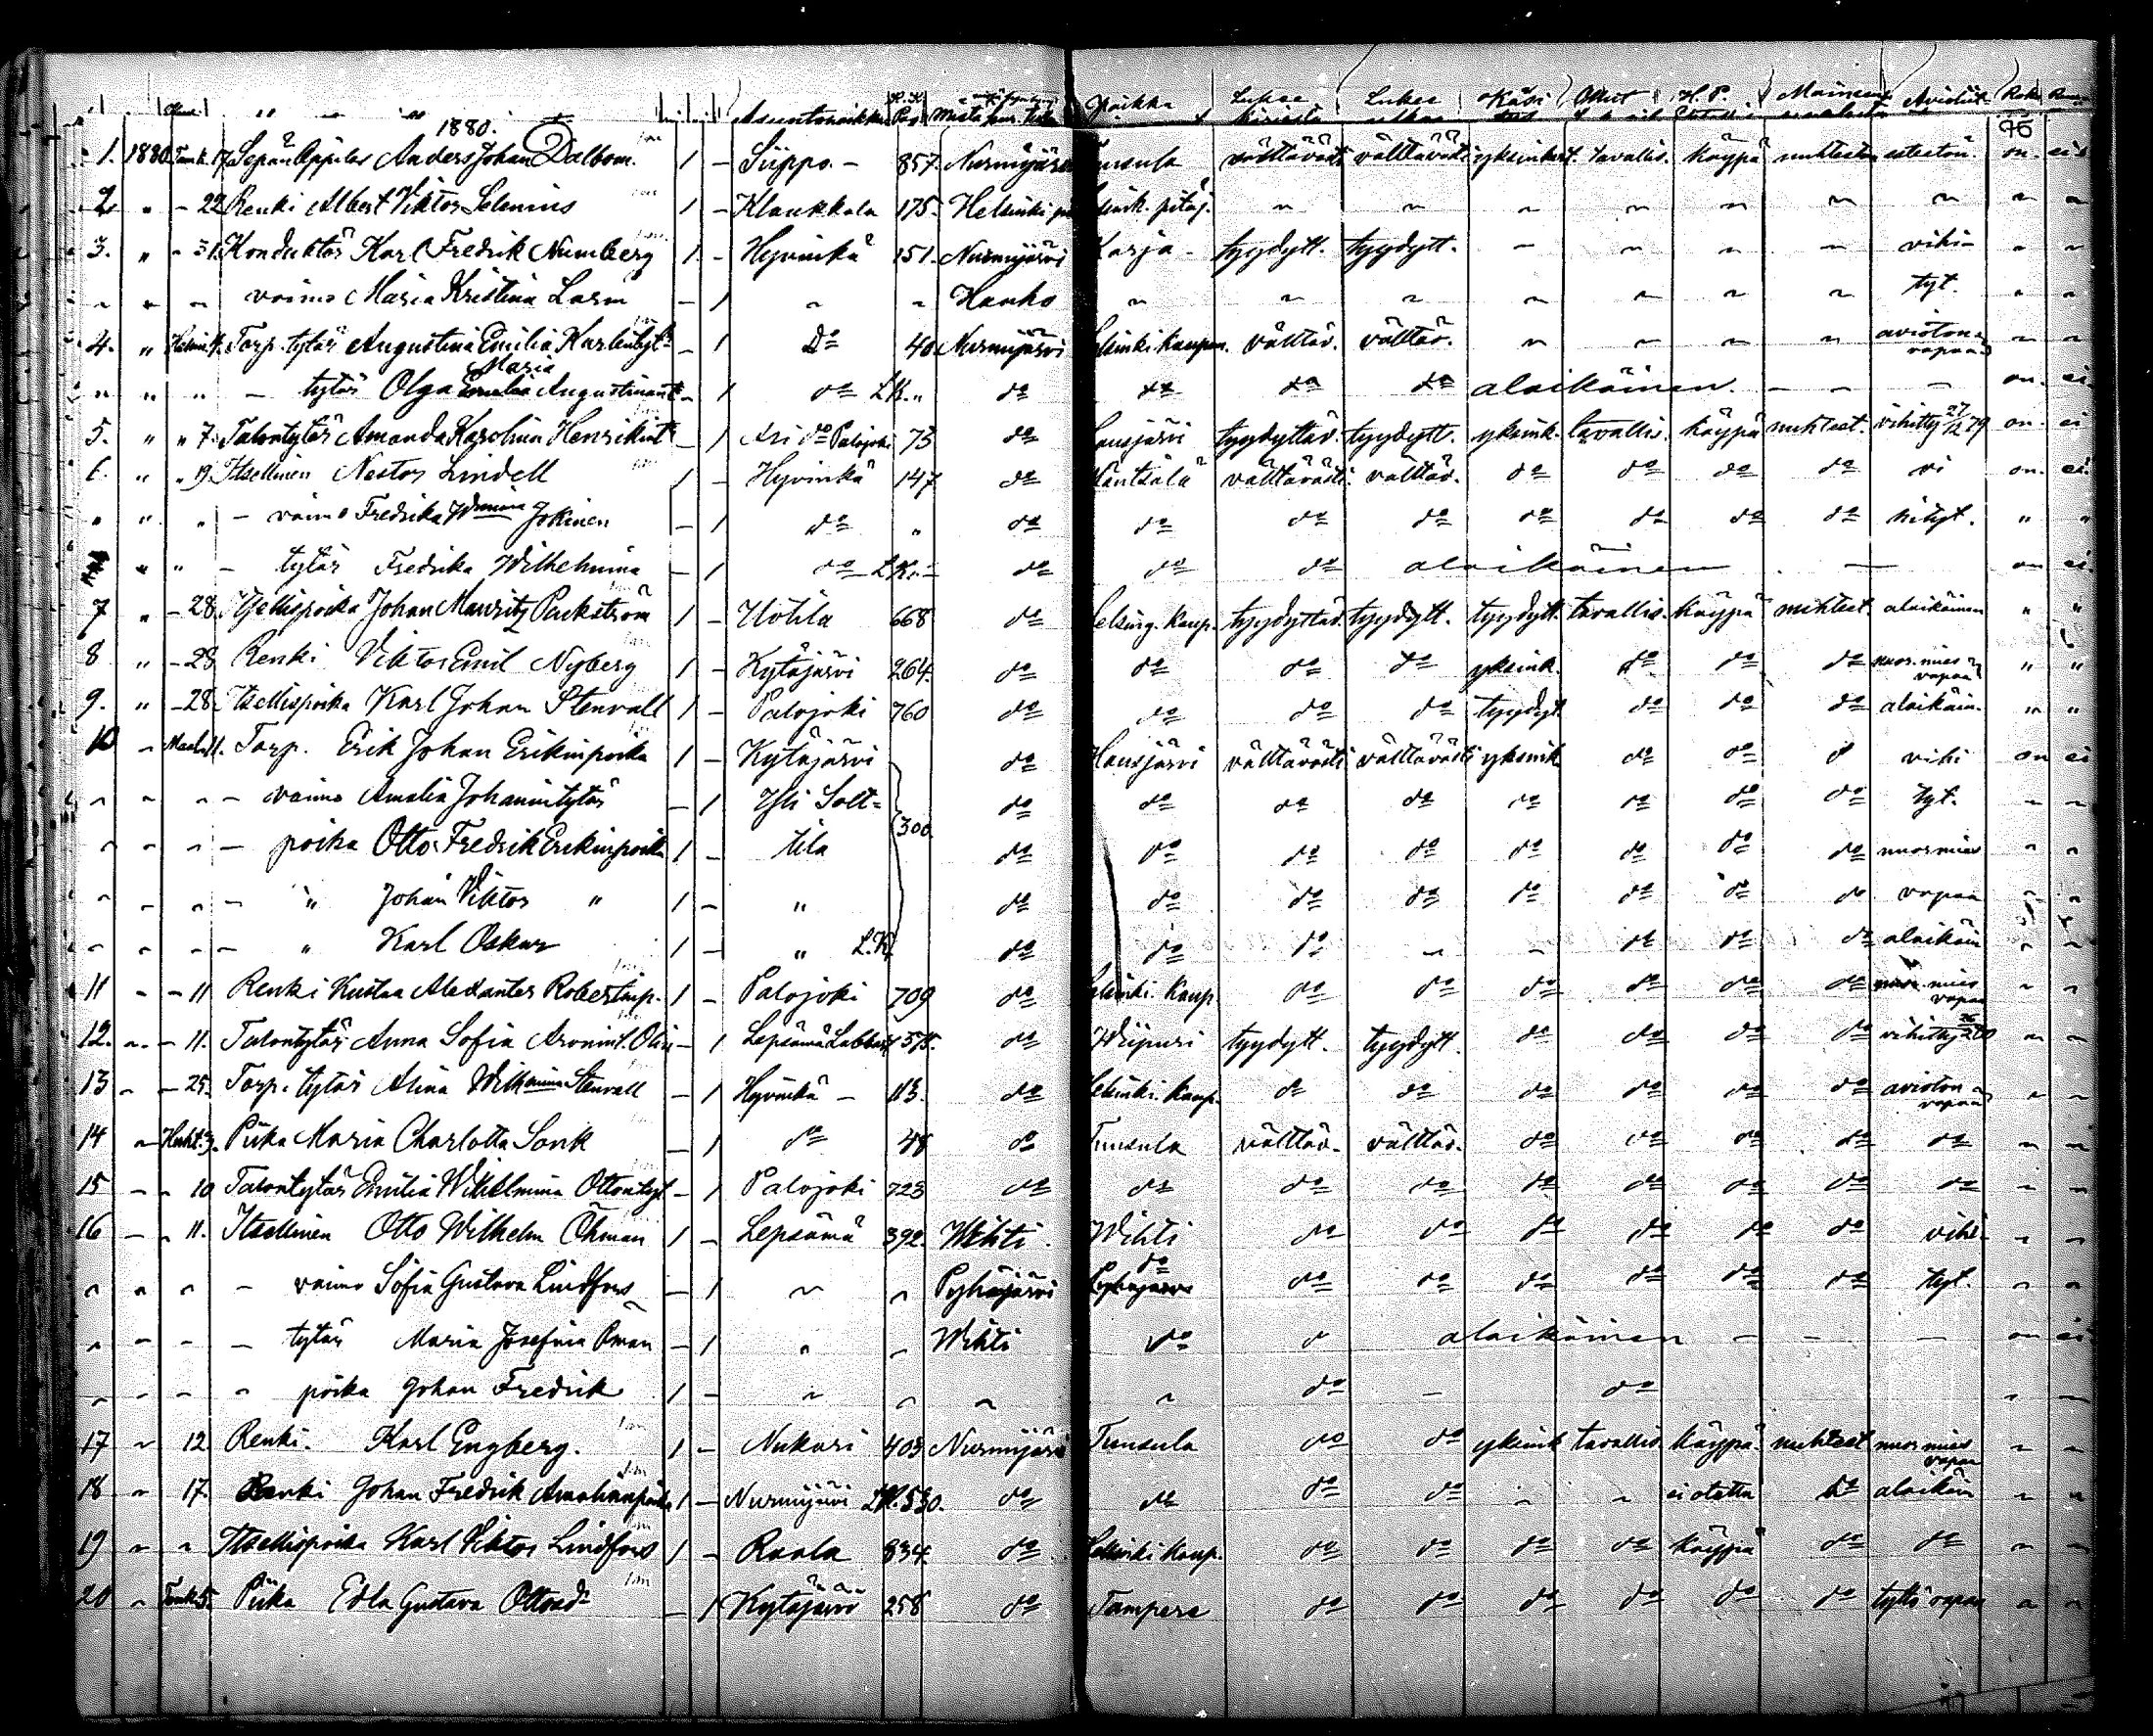 Asuntopaikka Paikka Lukee Lukee Käsi Ollut H. P. Maineen Aviollis
1880. 75
1. 1880 Tamk. 17 Sepän Oppilas Anders Johan Dalbom. 1 - Siippo. - 857. Nurmijärvi Tuusula välttävästi välttävästi yksinkert. tavallis. käypä nuhteeton esteetön. on. ei
2. " - 22 Renki Albert Viktor Selenius 1 - Klaukkala 175. Helsinki pit. Helsink. pitäj. " " " " " " " " "
3. " - 31 Konduktör Karl Fredrik Numberg 1 - Hyvinkä 151. Nurmijärvi Karja - tyydytt. tyydytt. - " " " vihi- " "
" " " vaimo Maria Kristina Larm - 1 " " Hanko " " " " " " " tyt. " "
4. " Helmik. Torp. tytär Augustina Emilia Karlintyt. - 1 do 40 Nurmijärvi Helsinki kaupun. välttäv. välttäv. " " " " avioton vapaa " "
Maria
" " " - tytär Olga Augustinant. - 1 do LK. " do do do do alaikäinen - - - on. ei.
5. " " 7. Talontytär Amanda Karolina Henrikint. - 1 do Palojoki 73 do Hausjärvi tyydyttäv. tyydytt. yksink. tavallis. käypä nuhteet. vihitty 27/12 79 on. ei
6. " " 19. Itsellinen Nestor Lindell 1 - Hyvinkä 147 do Mäntsälä välttävästi. välttäv. do do do do vi on. ei.
" " " - vaimo Fredrika Wmina Jokinen - 1 do " do do do do do do do do hityt. " "
" " - tytär Fredrika Wilhelmina - 1 do LK. - do do do alaikäinen - on ei.
7 " - 28. Itsellispoika Johan Mauritz Packström 1 - Uotila 668 do Helsing. Kaup. tyydyttäv. tyydytt. tyydytt. tavallis. käypä nuhteet. alaikäinen " "
8 " - 28 Renki Viktor Emil Nyberg 1 - Kytäjärvi 264. do do do do yksink. do do do nuor. mies vapaa " "
9. " - 28 Itsellispoika Karl Johan Stenvall 1 - Palojoki 760 do do do do tyydyt. do do do alaikäin. " "
10 " Maalisk. Torp. Erik Johan Erikinpoika 1 - Kytäjärvi do Hausjärvi välttävästi välttävästi yksink. do do do vihi on ei
" " " - vaimo Amalia Johanintytär - 1 Yli Solt= do do do do do do do do tyt. " "
" " " - poika Otto Fredrik Erikinpoika 1 - tila 300. do do do do do do do do nuor mies " "
" " " - " Johan Viktor " 1 - " do do do do do do do do vapaa " "
" " " - " Karl Oskar 1 - " L.K. do do do " " do do do alaikäin " "
11 - - 11 Renki Kustaa Alexanter Robertinp. 1 - Palojoki 709 do Helsinki. Kaup. do do do do do do nuor. mies vapaa " "
12. - - 11. Talontytär Anna Sofia Aronint. - 1 Lepsämä 575. do Wiipuri tyydytt. tyydytt. do do do do vihitty " "
13 - - 25. Torp. tytär Alina Wilhmina Stenvall - 1 Hyvinkä - 113. do Helsinki. Kaup. do do do do do do avioton vapaa " "
14 " Huht. 3. Piika Maria Charlotta Sonk - 1 do 48 do Tuusula välttäv. välttäv. do do do do do " "
15 - - 10 Talontytär Emilia Wilhelmina Ottontyt. - 1 Palojoki 723 do do do do do do do do do " "
16 - - 11. Itsellinen Otto Wilhelm Öhman 1 - Lepsämä 392. Wihti. Wihti do do do do do do vihi- " "
" " " - vaimo Sofia Gustava Lindfors - 1 " " Pyhäjärvi do do do do do do do tyt. " "
" - - - tytär Maria Josefina Öman - 1 " " Wihti do do alaikäinen - - - on ei
" - - " poika Johan Fredrik 1 - " " " " do - do " "
17 " 12 Renki. Karl Engberg. 1 - Nukari 403 Nurmijärvi Tuusula do do yksink tavallis käypä. nuhteet nuor mies vapaa " "
18 " 17. Renki Johan Fredrik Amalianpoika 1 - Nurmijärvi LK. 530. do do do do " " ei otettu do alaikän " "
19 " " Itsellispoika Karl Viktor Lindfors 1 - Raala 834. do Helsinki Kaup. do do do do käypä do do " "
20 " Touk. 5. Piika Edla Gustava Ottosdr 1 Kytäjärvi 258 do Tampere do do do do do do tyttö vapaa " "